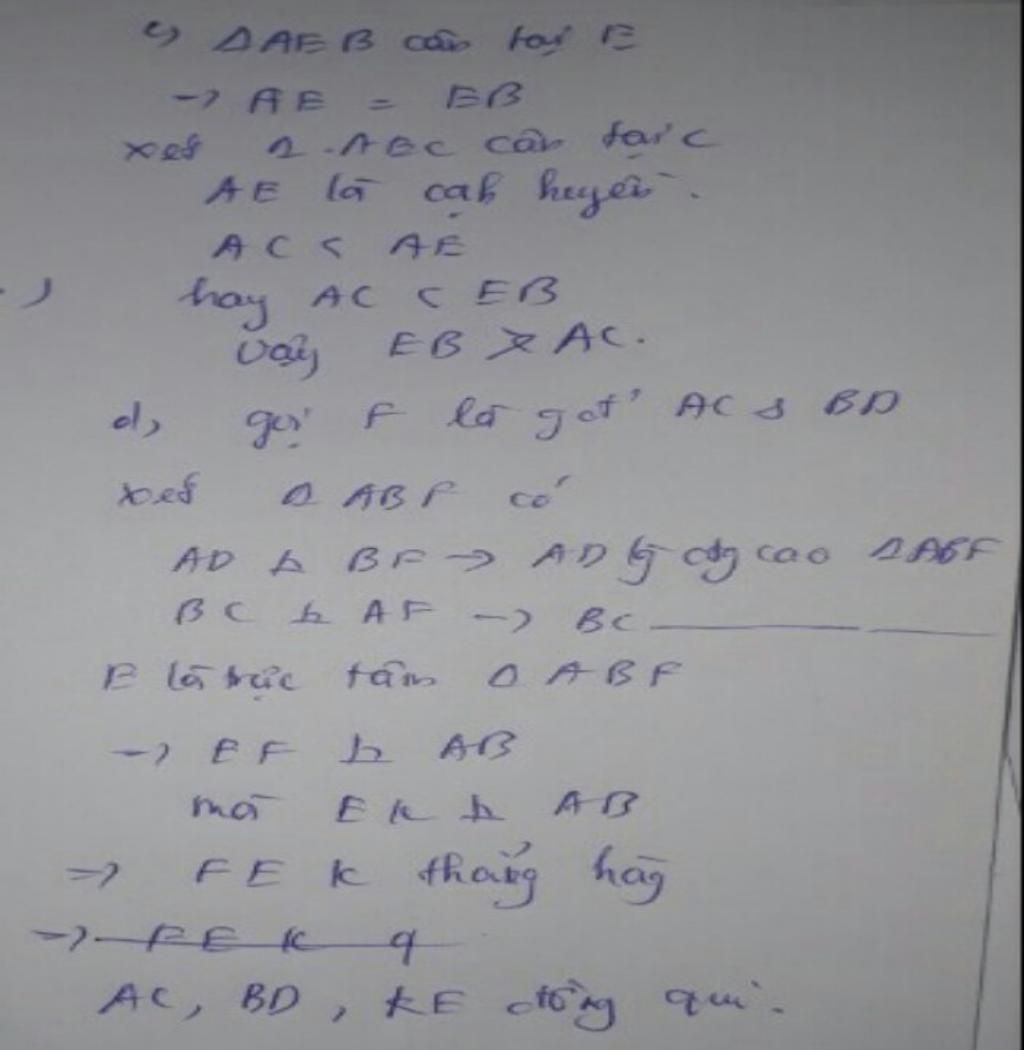 c) Δ AEB cân tại E
→ AE = EB
xét Δ AEC cân tại C
AE là cạh huyền.
AC < AE
hay AC < EB
Vậy EB > AC.
d, gọi F là gđ' AC & BD
xét Δ ABF có
AD ⊥ BF → AD là đg cao Δ ABF
BC ⊥ AF → BC ————
E là trực tâm Δ ABF
→ EF ⊥ AB
mà EK ⊥ AB
⇒ F E K thẳng hàg
⇒ F E K
AC, BD, KE đồng qui.